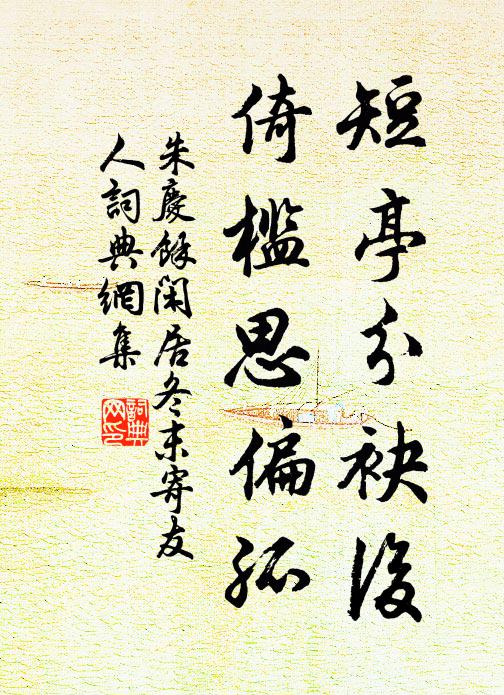 短亭分袂後
倚檻思偏孤
朱慶餘閑居冬末寄友
人詞典網集
詞典
网印